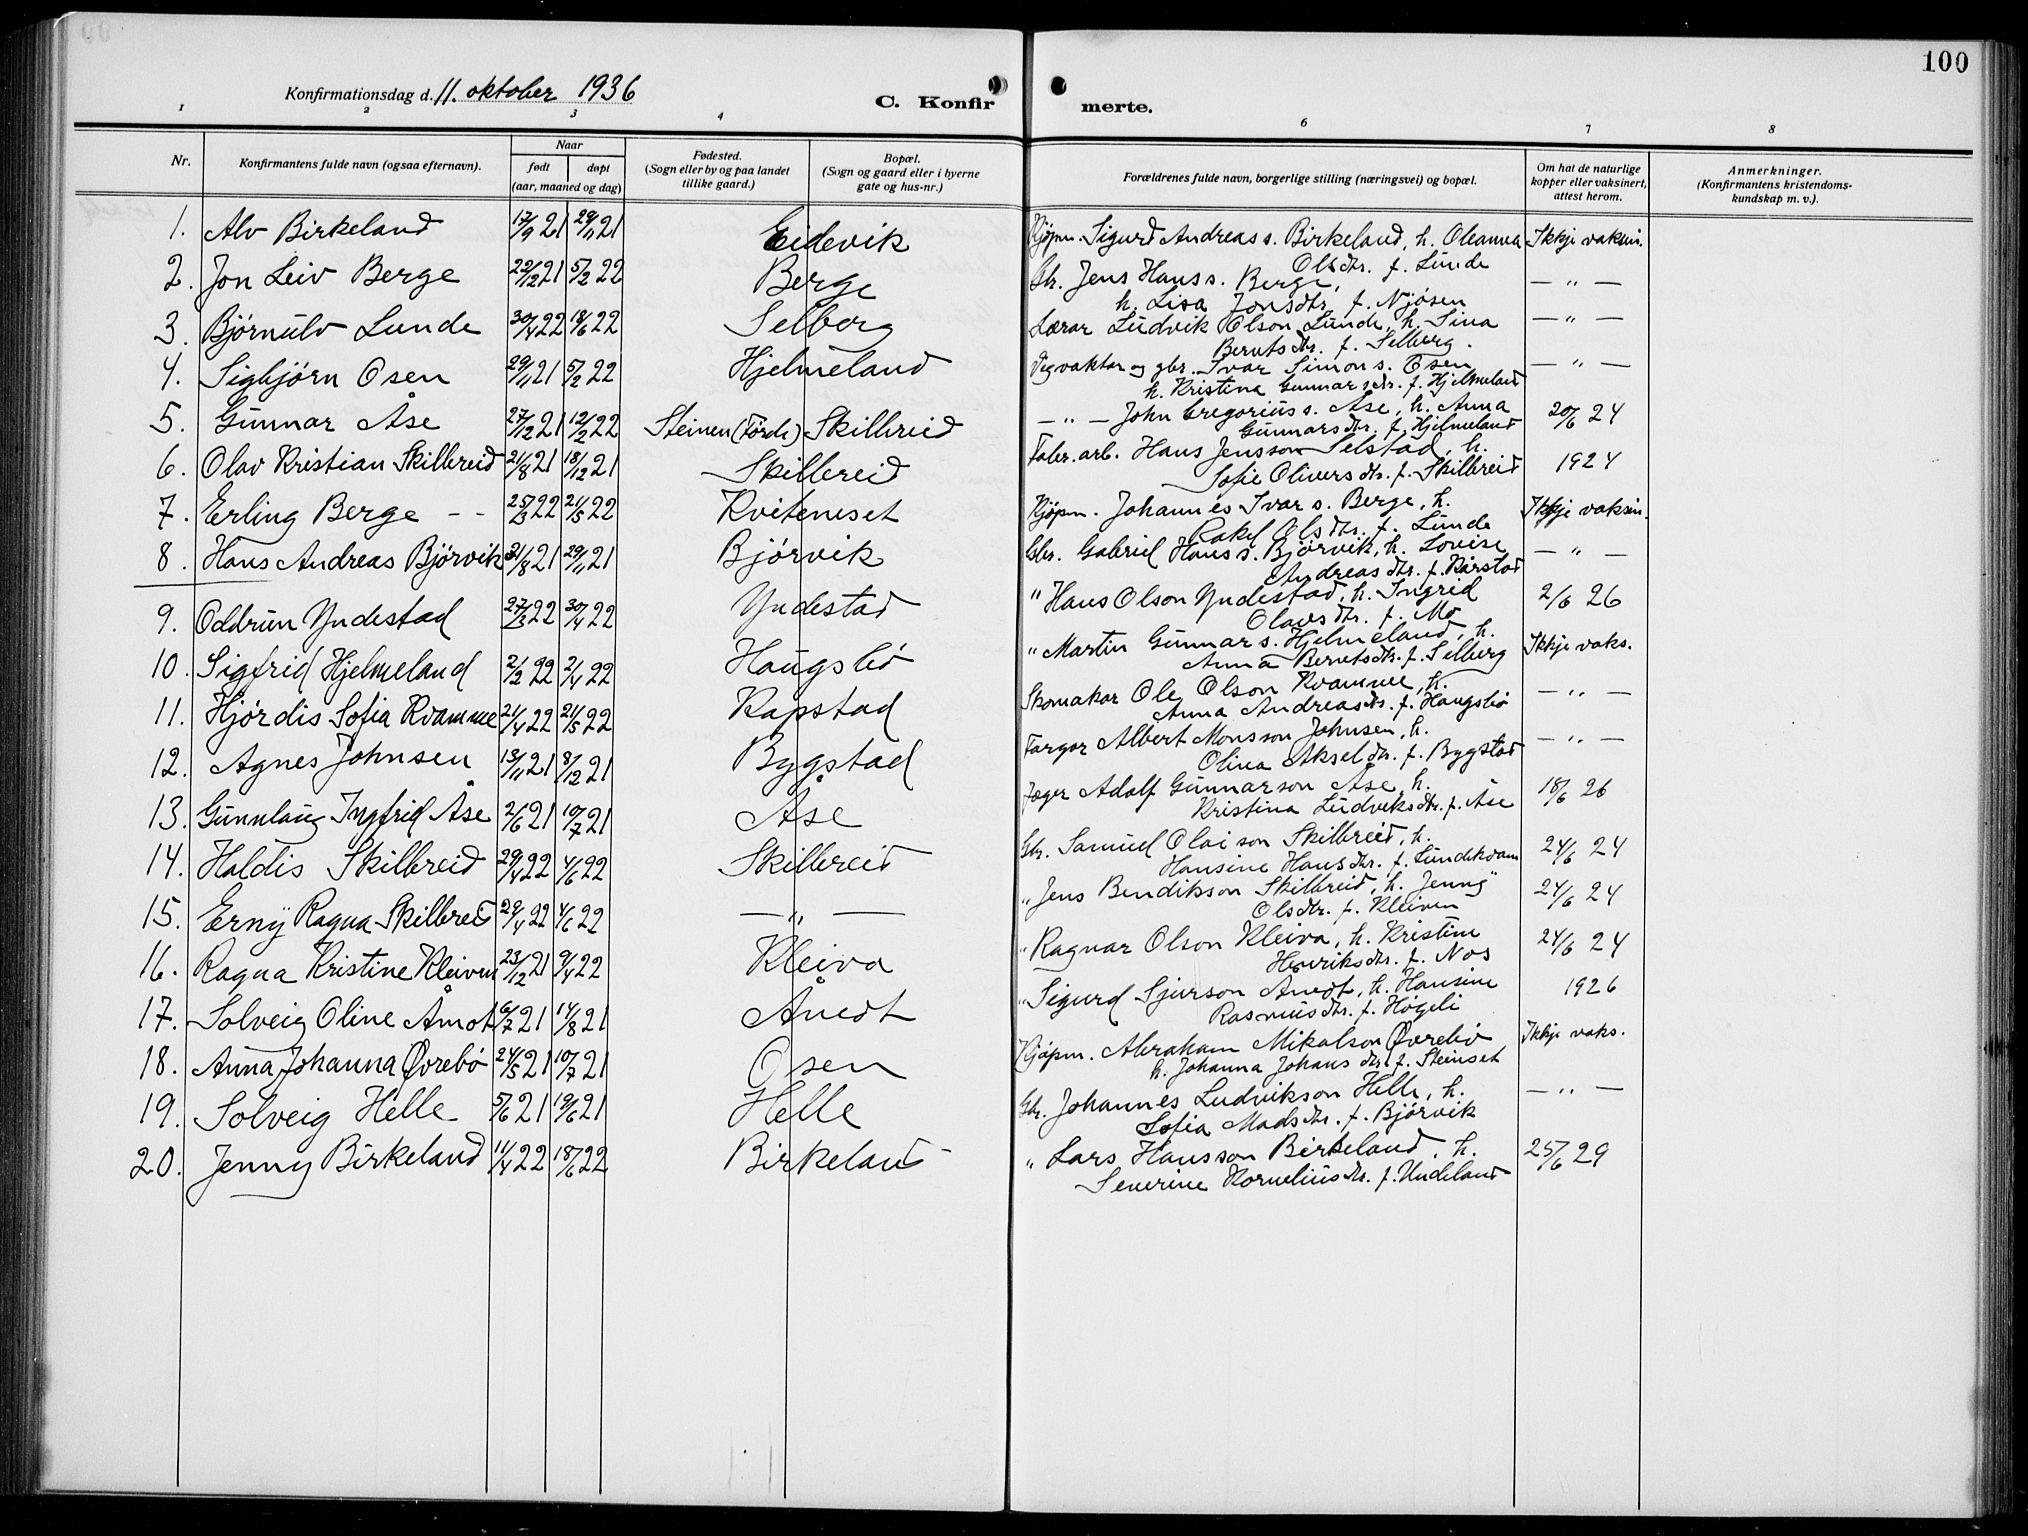 100
Konfirmationsdag d. 11. oktober 1936
C. Konfir merte.
1 2 3 4 6 7 8
Nr.
Konfirmantens fulde navn (ogsaa efternavn).
Naar
født døpt
(aar, maaned og dag)
Fødested.
(Sogn eller by og paa landet
tillike gaard.)
Bopæl.
(Sogn og gaard eller i byerne
gate og hus-nr.)
Forældrenes fulde navn, borgerlige stilling (næringsvei) og bopæl.
Om hat de naturlige
kopper eller vaksinert,
attest herom.
Anmerkninger.
(Konfirmantens kristendoms-
kundskap m. v.).
1. Alv Birkeland 17/9 21 29/11 21 Eidevik Kjøpm. Sigurd Andreas s. Birkeland, h. Oleanna Ikkje vaksin.
Olsdtr. f. Lunde
2. Jon Leiv Berge 22/12 21 5/2 22 Berge Gbr. Jens Hans s. Berge, — " —
h. Lisa Jonsdtr. f. Njøsen
3. Bjørnulv Lunde 30/4 22 18/6 22 Selberg Lærar Ludvik Olson Lunde, h. Sina — " —
Berntsdtr. f. Selberg.
4. Sigbjørn Osen 29/11 21 5/2 22 Hjelmeland Vegvaktar og gbr. Ivar Simon s. Osen — " —
h. Kristina Gunnarsdtr. f. Hjelmeland
5. Gunnar Åse 27/12 21 12/2 22 Steinen (Førde) Skilbreid — " — John Gregorius s. Åse, h. Anna 20/6 24
Gunnarsdtr. f. Hjelmeland
6. Olav Kristian Skilbreid 21/8 21 18/12 21 Skilbreid Fabr. arb. Hans Jensson Selstad, h. 1924
Sofie Oliversdtr. f. Skilbreid
7. Erling Berge - - 25/3 22 21/5 22 Kviteneset Kjøpm. Johannes Ivar s. Berge, h. Ikkje vaksin.
Rakel Olsdtr. f. Lunde
8. Hans Andreas Bjørvik 31/8 21 29/11 21 Bjørvik Gbr. Gabriel Hans s. Bjørvik, h. Lovise — " —
Andreasdtr. f. Kårstad
9. Oddrun Yndestad 27/3 22 30/4 22 Yndestad " Hans Olson Yndestad, h. Ingrid 2/6 26
Olavsdtr. f. Mo
10. Sigfrid Hjelmeland 2/2 22 2/4 22 Haugsbø " Martin Gunnar s. Hjelmeland, h. Ikkje vaks.
Anna Berntsdtr. f. Selberg
11. Hjørdis Sofia Kvamme 21/4 22 21/5 22 Rapstad Skomakar Ole Olson Kvamme, h. — " —
Anna Andreasdtr. f. Haugsbø
12. Agnes Johnsen 13/11 21 8/12 21 Bygstad Fargar Albert Monsson Johnsen, h. — " —
Olina Akseldtr. f. Bygstad
13. Gunnlaug Ingfrid Åse 2/6 21 10/7 21 Åse Jæger Adolf Gunnarson Åse, h. 18/6 26
Kristina Ludviksdtr. f. Åse
14. Haldis Skilbreid 29/4 22 4/6 22 Skilbreid Gbr. Samuel Olai son Skilbreid, h. 24/6 24
Hansine Hansdtr. f. Lundekvam
15. Erny Ragna Skilbreid 29/4 22 4/6 22 — " — " Jens Bendikson Skilbreid, h. Jenny 24/6 24
Olsdtr. f. Kleiven
16. Ragna Kristine Kleiven 23/12 21 9/4 22 Kleiva " Ragnar Olson Kleiva, h. Kristine 24/6 24
Henriksdtr. f. Nos
17. Solveig Oline Åmot 16/7 21 14/8 21 Åmot " Sigurd Sjurson Åmot, h. Hansine 1926
Rasmusdtr. f. Høgeli
18. Anna Johanna Øvrebø 24/5 21 10/7 21 Osen Kjøpm. Abraham Mikalson Øvrebø Ikkje vaks.
h. Johanna Johansdtr. f. Steinset
19. Solveig Helle 5/6 21 19/6 21 Helle Gbr. Johannes Ludvikson Helle, h. — " —
Sofia Madsdtr. f. Bjørvik
20. Jenny Birkeland 11/4 22 18/6 22 Birkeland " Lars Hansson Birkeland, h. 25/6 29
Severine Korneliusdtr. f. Undeland